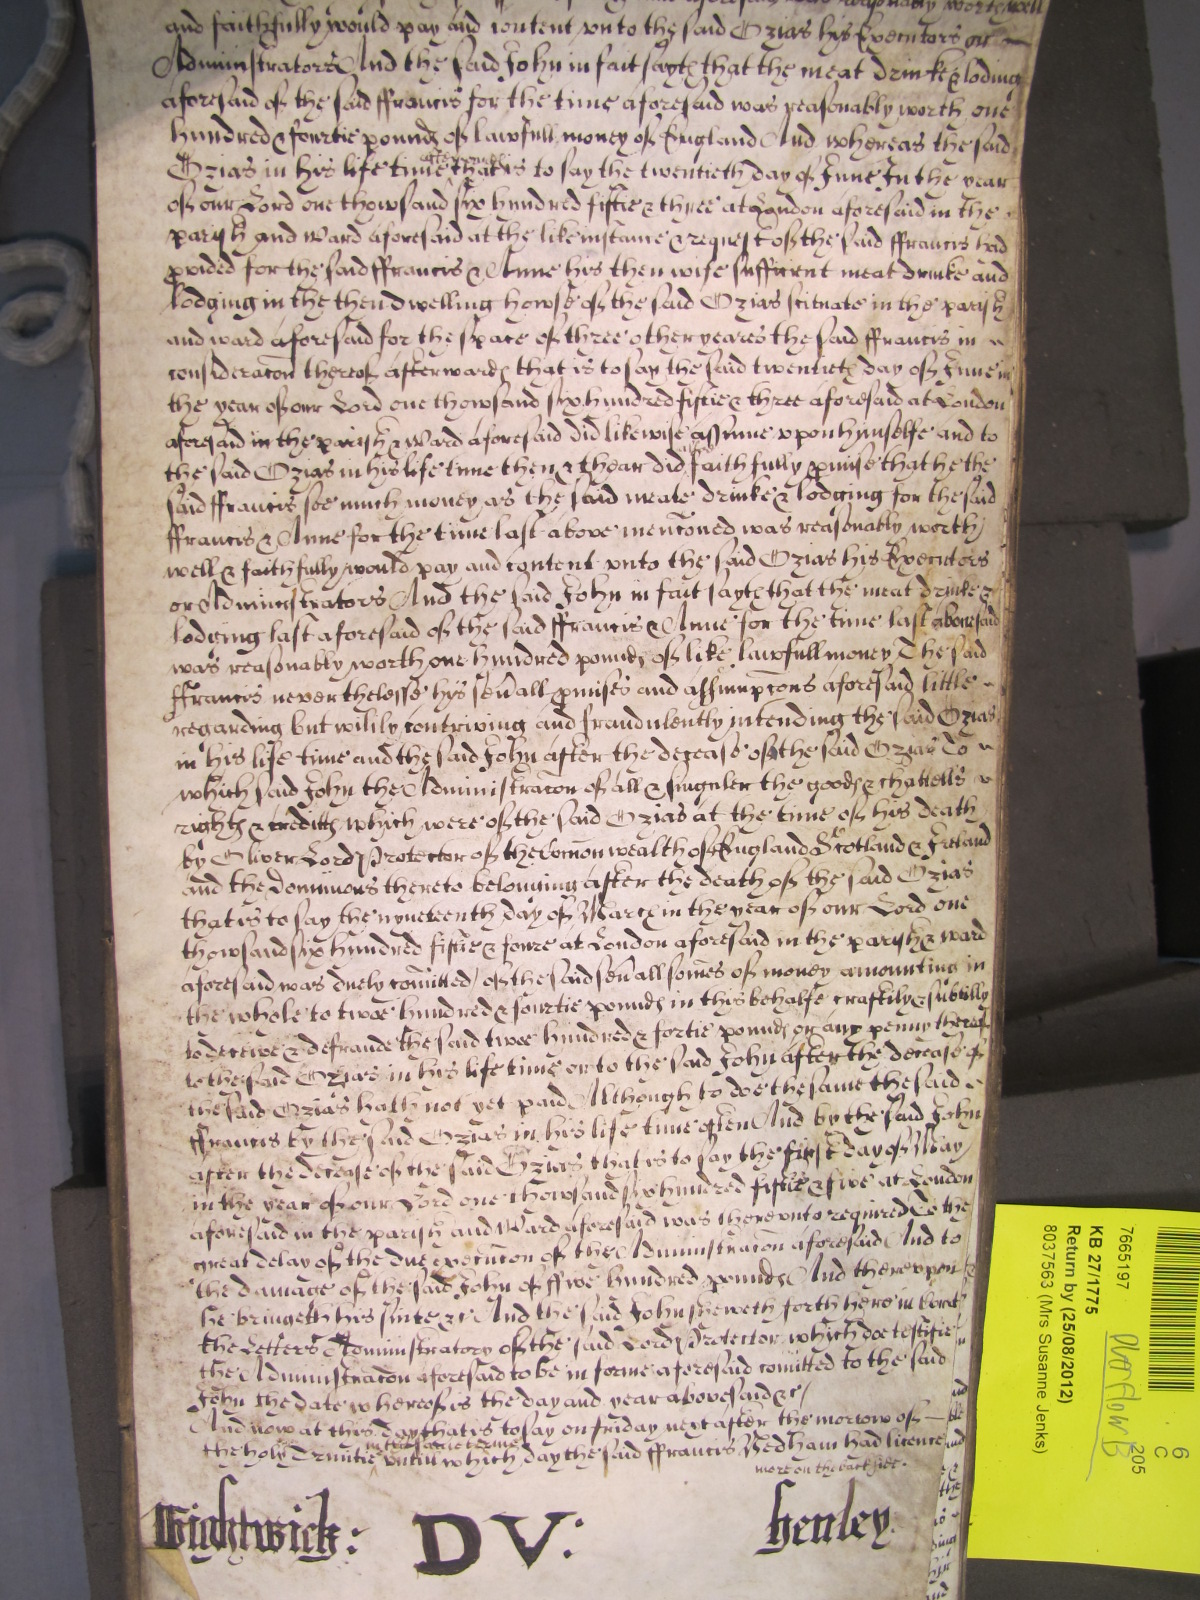 and faithfully would pay and content vnto the said Ozias his Executors or
Administrators And the said John in fait sayth that the meat drinke & loding
aforesaid of the said ffrancis for the time aforesaid was reasonably worth one
hundred & fourtie pounds of lawfull money of England And whereas the said
Ozias in his life time afterwards that is to say the twentieth day of June In the year
of our Lord one thowsand six hundred fiftie & three at London aforesaid in the
parish and Ward aforesaid at the like instance & request of the said ffrancis had
pvided for the said ffrancis & Anne his then wife sufficient meat drinke and
lodging in the then dwelling howse of the said Ozias scituate in the parish
and ward aforesaid for the space of three other yeares the said ffrancis in
consideracon thereof afterwards that is to say the said twentieth day of June in
the year of our Lord one thowsand six hundred fiftie & three aforesaid at London
aforesaid in the parish & Ward aforesaid did likewise assume vpon himselfe and to
the said Ozias in his life time then & thear did faithfully pmise that he the
said ffrancis soe much money as the said meate drinke & lodging for the said
ffrancis & Anne for the time last above mencioned was reasonably worth
well & faithfully would pay and content vnto the said Ozias his Executors
or Administrators And the said John in fait sayth that the meat drinke &
lodging last aforesaid of the said ffrancis & Anne for the time last abovesaid
was reasonably worth one hundred pounds of like lawfull money The said
ffrancis never thelesse his seuall pmises and assumpcons aforesaid little
regarding but wilily contriving and fraudulently intending the said Ozias
in his life time and the said John after the decease of the said Ozias To
which said John the Administracon of all & singuler the goods & chattells
rights & creditts which were of the said Ozias at the time of his death
by Oliver Lord Protector of the Comon wealth of England Scotland & Ireland
and the Dominions thereto belonging after the death of the said Ozias
that is to say the nyneteenth day of March in the year of our Lord one
thowsand six hundred fiftie & foure at London aforesaid in the parish & ward
aforesaid was duely comitted of the said seuall somes of money amounting in
the whole to twoe hundred & fourtie pounds in this behalfe craftily & subtilly
to deceive & defraude the said twoe hundred & fortie pounds or any penny thereof
to the said Ozias in his life time or to the said John after the decease of
the said Ozias hath not yet paid Although to doe the same the said
ffrancis by the said Ozias in his life time often And by the said John
after the decease of the said Ozias that is to say the first day of May
in the year of our Lord one thowsand six hundred fiftie & five at London
aforesaid in the parish and Ward aforesaid was therevnto required To the
great delay of the due execucon of the Administracon aforesaid And to
the damage of the said John of ffive hundred pounds And therevpon
he bringeth his suite &c And the said John sheweth forth here in Court
the Letters Administratory of the said Lord Protector which doe testifie
the Administracon aforesaid to be in forme aforesaid comitted to the said
John the date whereof is the day and year abovesaid &c
And now at this day that is to say on friday next after the morrow of
the holy Trinitie in this same terme vntill which day the said ffrancis Nedham had licence
more on the back side.
Wightwick: DV: Henley
7665197
KB 27/1775
Return by (25/08/2012)
8037563 (Mrs Susanne Jenks)
205
6
C